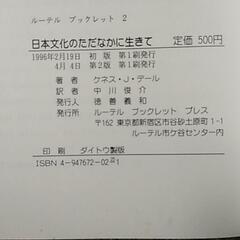 ルーテル ブックレット 2
日本文化のただなかに生きて 定価 500円
1996年2月19日 初 版 第1刷発行
4月 4日 第2版 第1刷発行
著者 ケネス・J・デール
訳者 中川俊介
発行人 徳善義和
発行所 ルーテル ブックレット プレス
〒162 東京都新宿区市谷砂土原町1-1
ルーテル市ケ谷センター内
印刷 ダイトウ製版
ISBN 4-947672-02-1